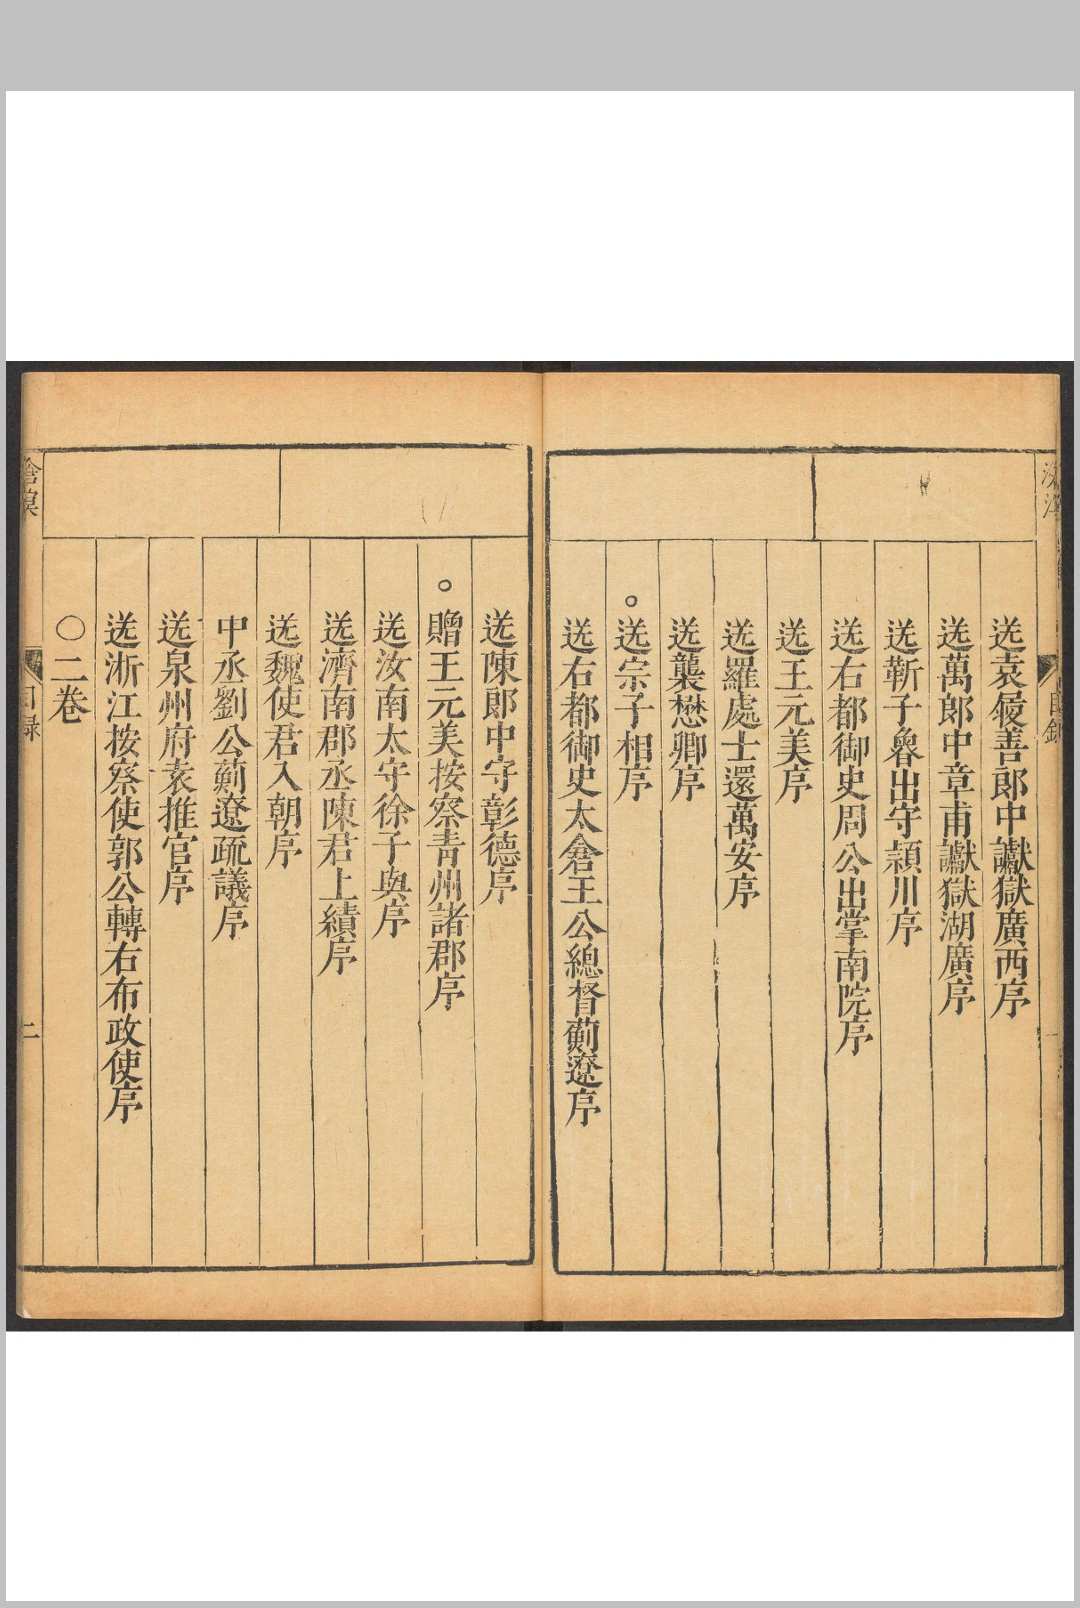 送袁履善郎中讞獄廣西序
送萬郎中章甫讞獄湖廣序
送靳子魯出守潁川序
送右都御史周公出掌南院序
送王元美序
送羅處士還萬安序
送襲懋卿序
。送宗子相序
送右都御史太倉王公總督薊遼序
送陳郎中守彰德序
。贈王元美按察青州諸郡序
送汝南太守徐子與序
送濟南郡丞陳君上績序
送魏使君入朝序
中丞劉公薊遼疏議序
送泉州府袁推官序
送浙江按察使郭公轉右布政使序
○二卷
滄溟
目録
二